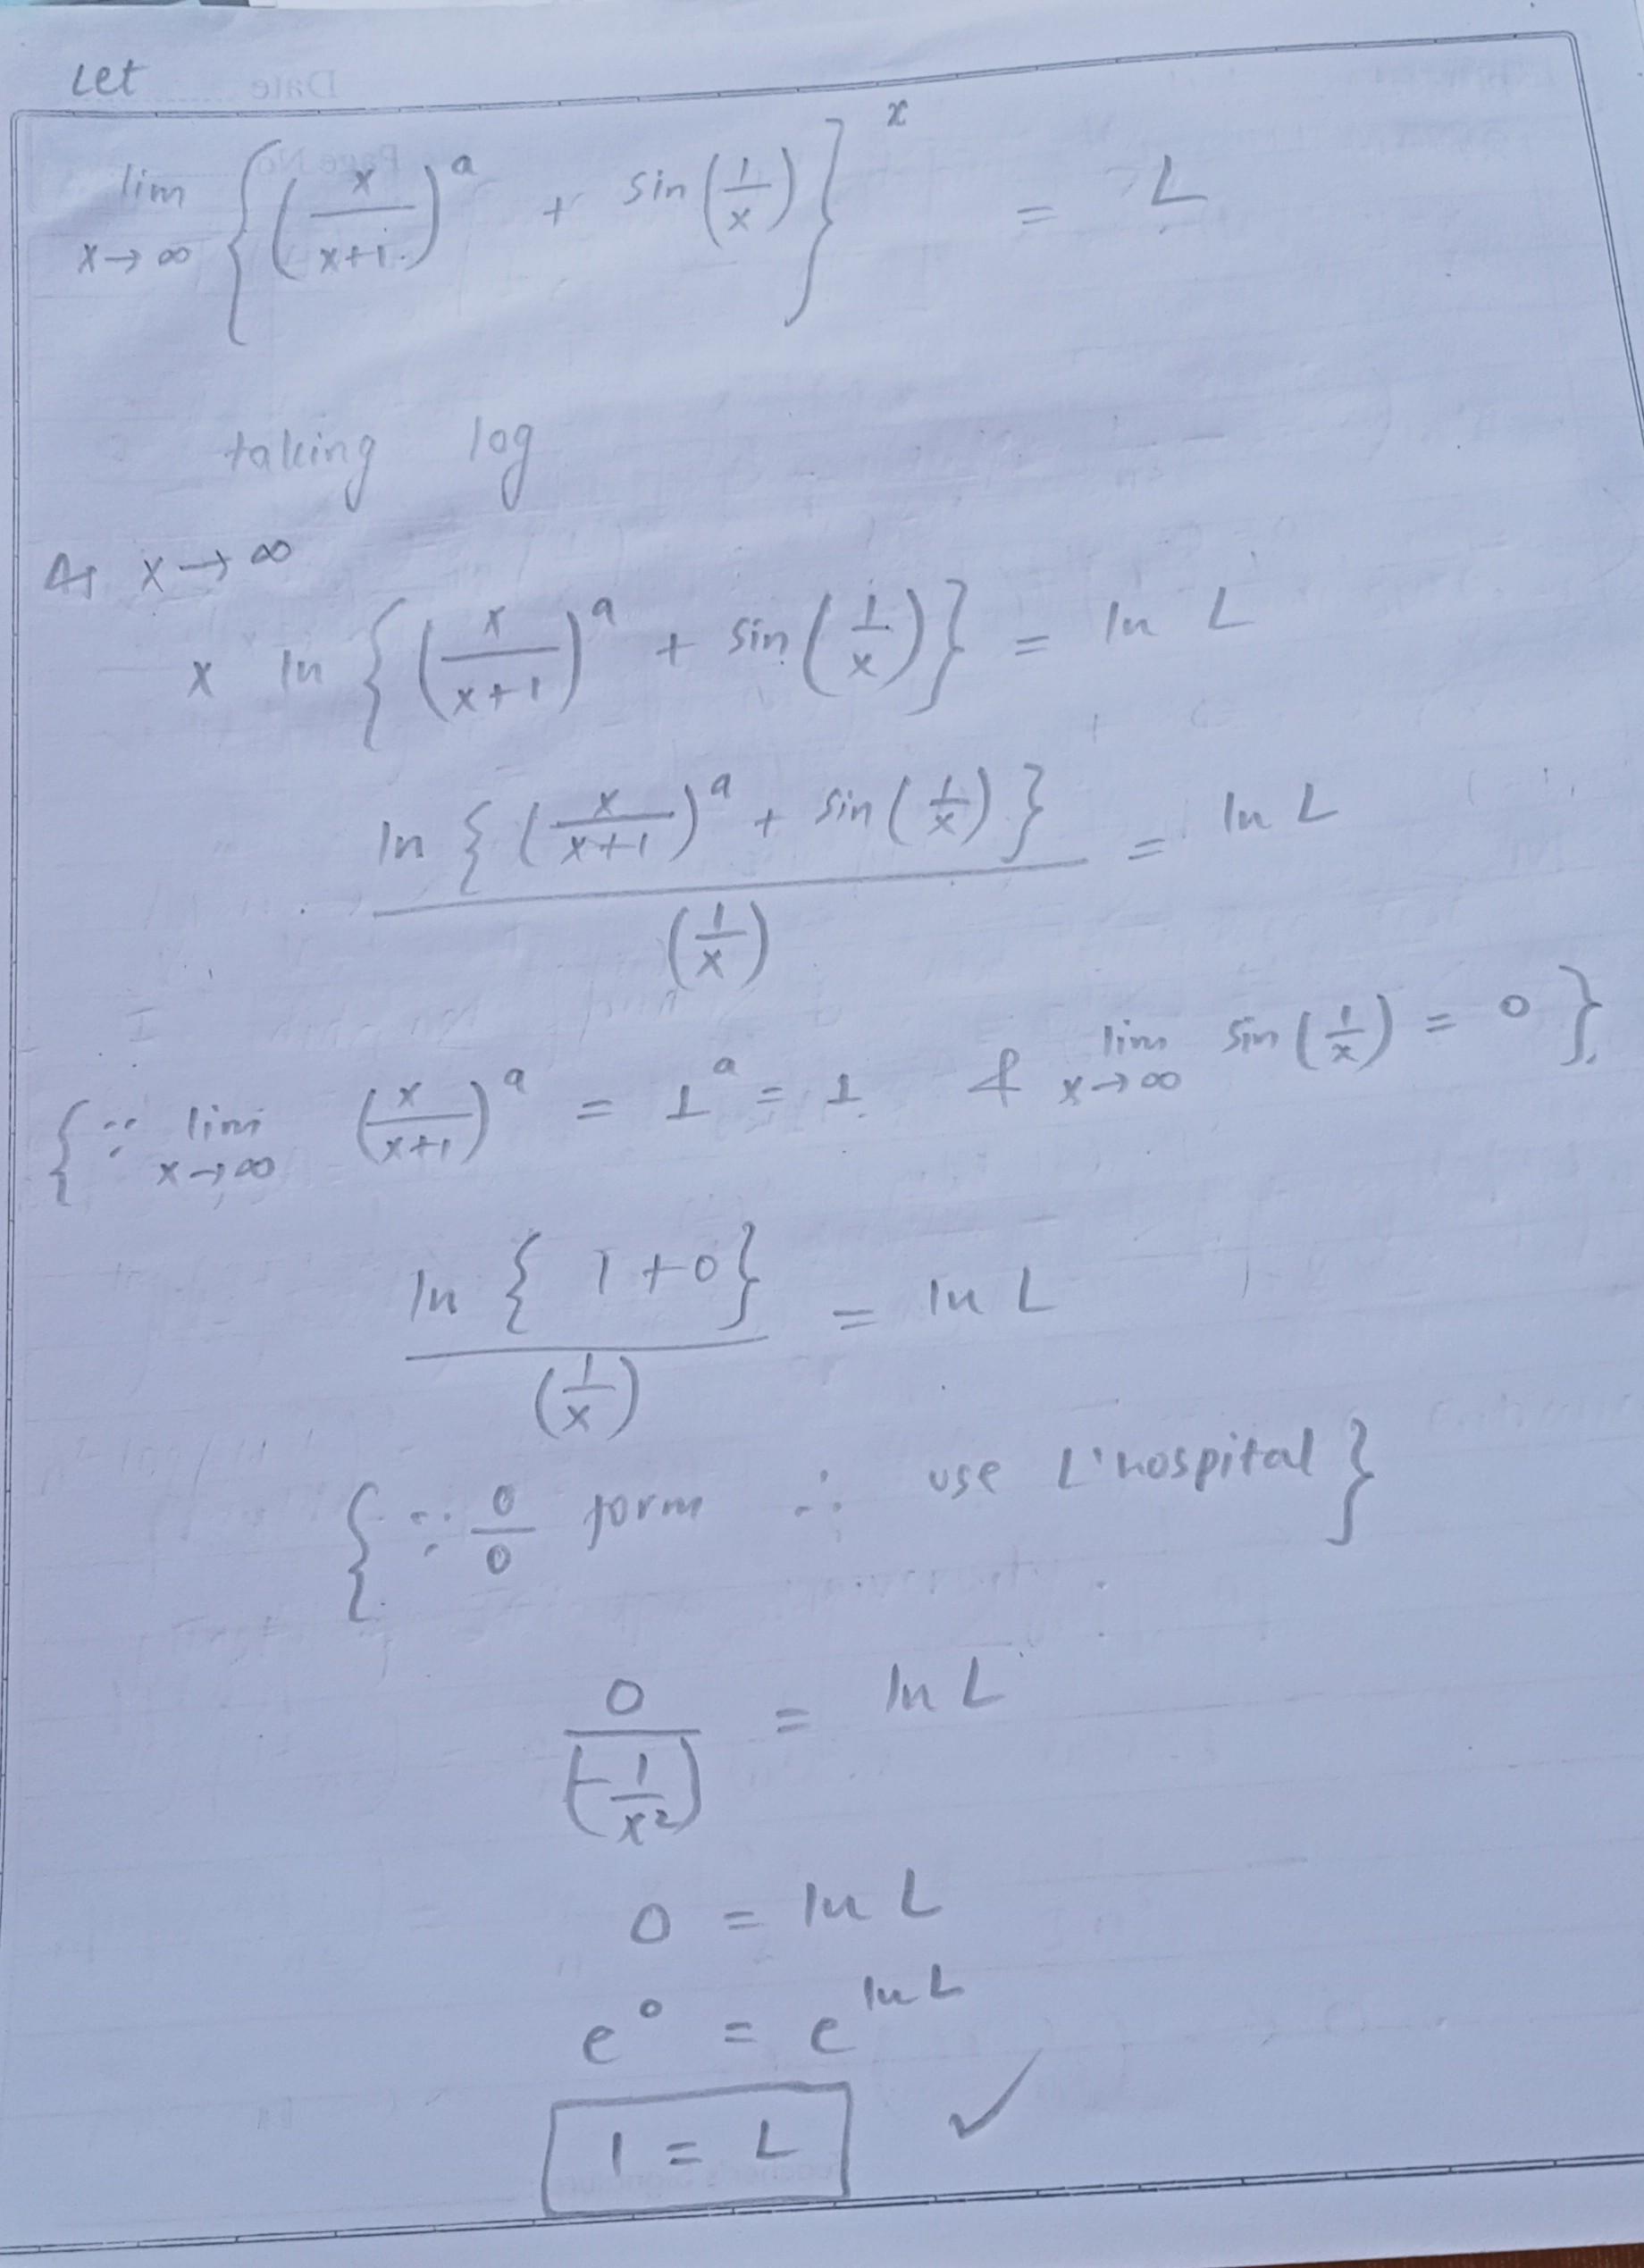 Let
lim x→∞ {(x/x+1)^a + sin(1/x)}^x = L
taking log
As x→∞
x ln {(x/x+1)^a + sin(1/x)} = ln L
ln {(x/x+1)^a + sin(1/x)} / (1/x) = ln L
{∵ lim x→∞ (x/x+1)^a = 1^a = 1 & lim x→∞ sin(1/x) = 0}
ln {1+0} / (1/x) = ln L
{∵ 0/0 form ∴ use L'hospital}
0 / (-1/x²) = ln L
0 = ln L
e^0 = e^ln L
1 = L ✓